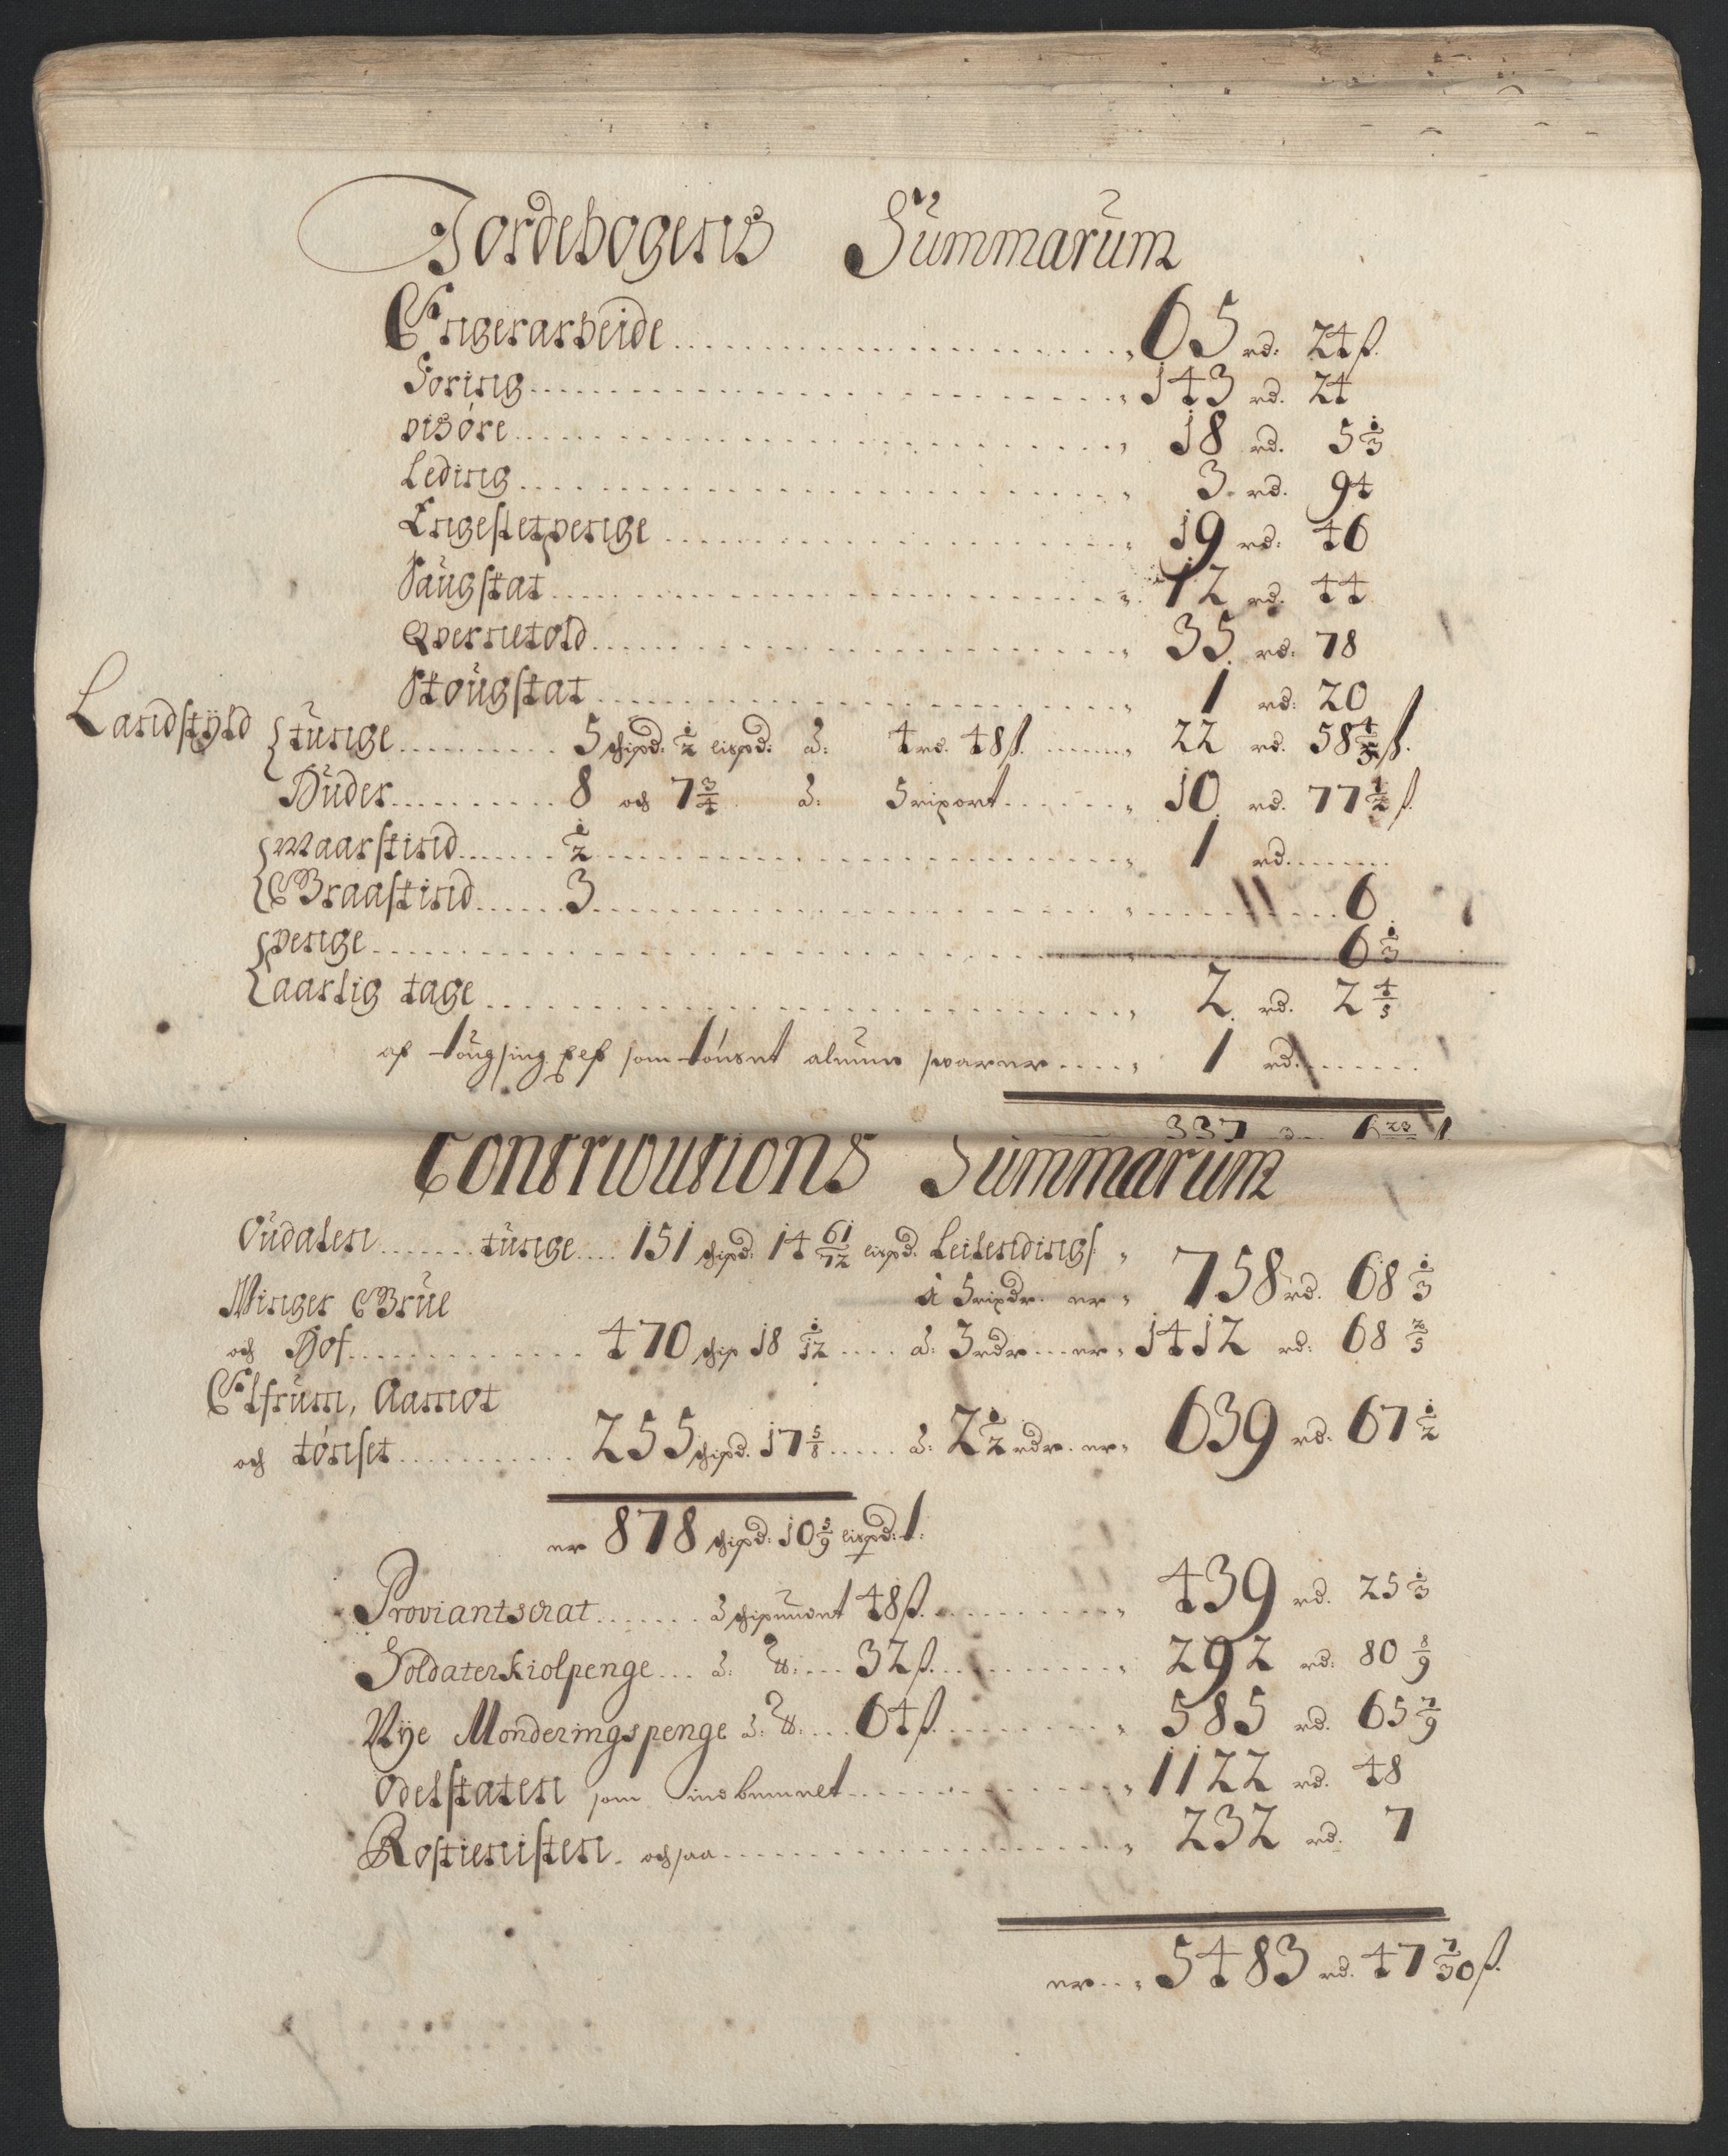 Jordebogens Summarum
Engerarbeide ... 65 rd: 24 ß.
Foring ... 143 rd. 24
visöre ... 18 rd. 5 1/3
Leding ... 3 rd. 94
Engesletpenge ... 19 rd: 46
Saugskat ... 12 rd. 44
Qvernetold ... 35 rd: 78
Skougskat ... 1 rd: 20
Landskÿld { tunge ... 5 schipd: 1/2 lispd: à: 4 rd. 48 ß. ... 22 rd. 58 4/5 ß.
Huder ... 8 och 7 3/4 à: 5 rixort ... 10 rd. 77 1/2 ß.
Maarskind ... 1/2 ... 1 rd.
Graaskind ... 3 ... 6
penge ... 6 1/3
aarlig tage ... 2 rd. 2 4/5
af som tönset svarer ... 1 rd.
337
Contributions Summarum
Oudalen ... tunge ... 151 schipd: 14 61/72 lispd. Leilendings
à 5 rixdr. er 758 rd. 68 1/3
Winger Grue
och Hof ... 470 schip 18 1/12 ... à: 3 rdr ... er 1412 rd: 68 2/5
Elfrum, Aamot
och tönset ... 255 schipd. 17 5/8 ... à: 2 1/2 rdr. er 639 rd: 67 1/2
er 878 schipd: 10 5/9 lispd:
Proviantscat ... à schipundt 48 ß. ... 439 rd. 25 1/3
Soldaterkiolpenge ... à: ... 32 ß. ... 292 rd: 80 8/9
Nÿe Monderingspenge à: ... 64 ß. ... 585 rd. 65 7/9
Odelskaten som ... 1122 rd. 48
Rostienisten. och saa ... 232 rd. 7
er ... 5483 rd. 47 7/30 ß.